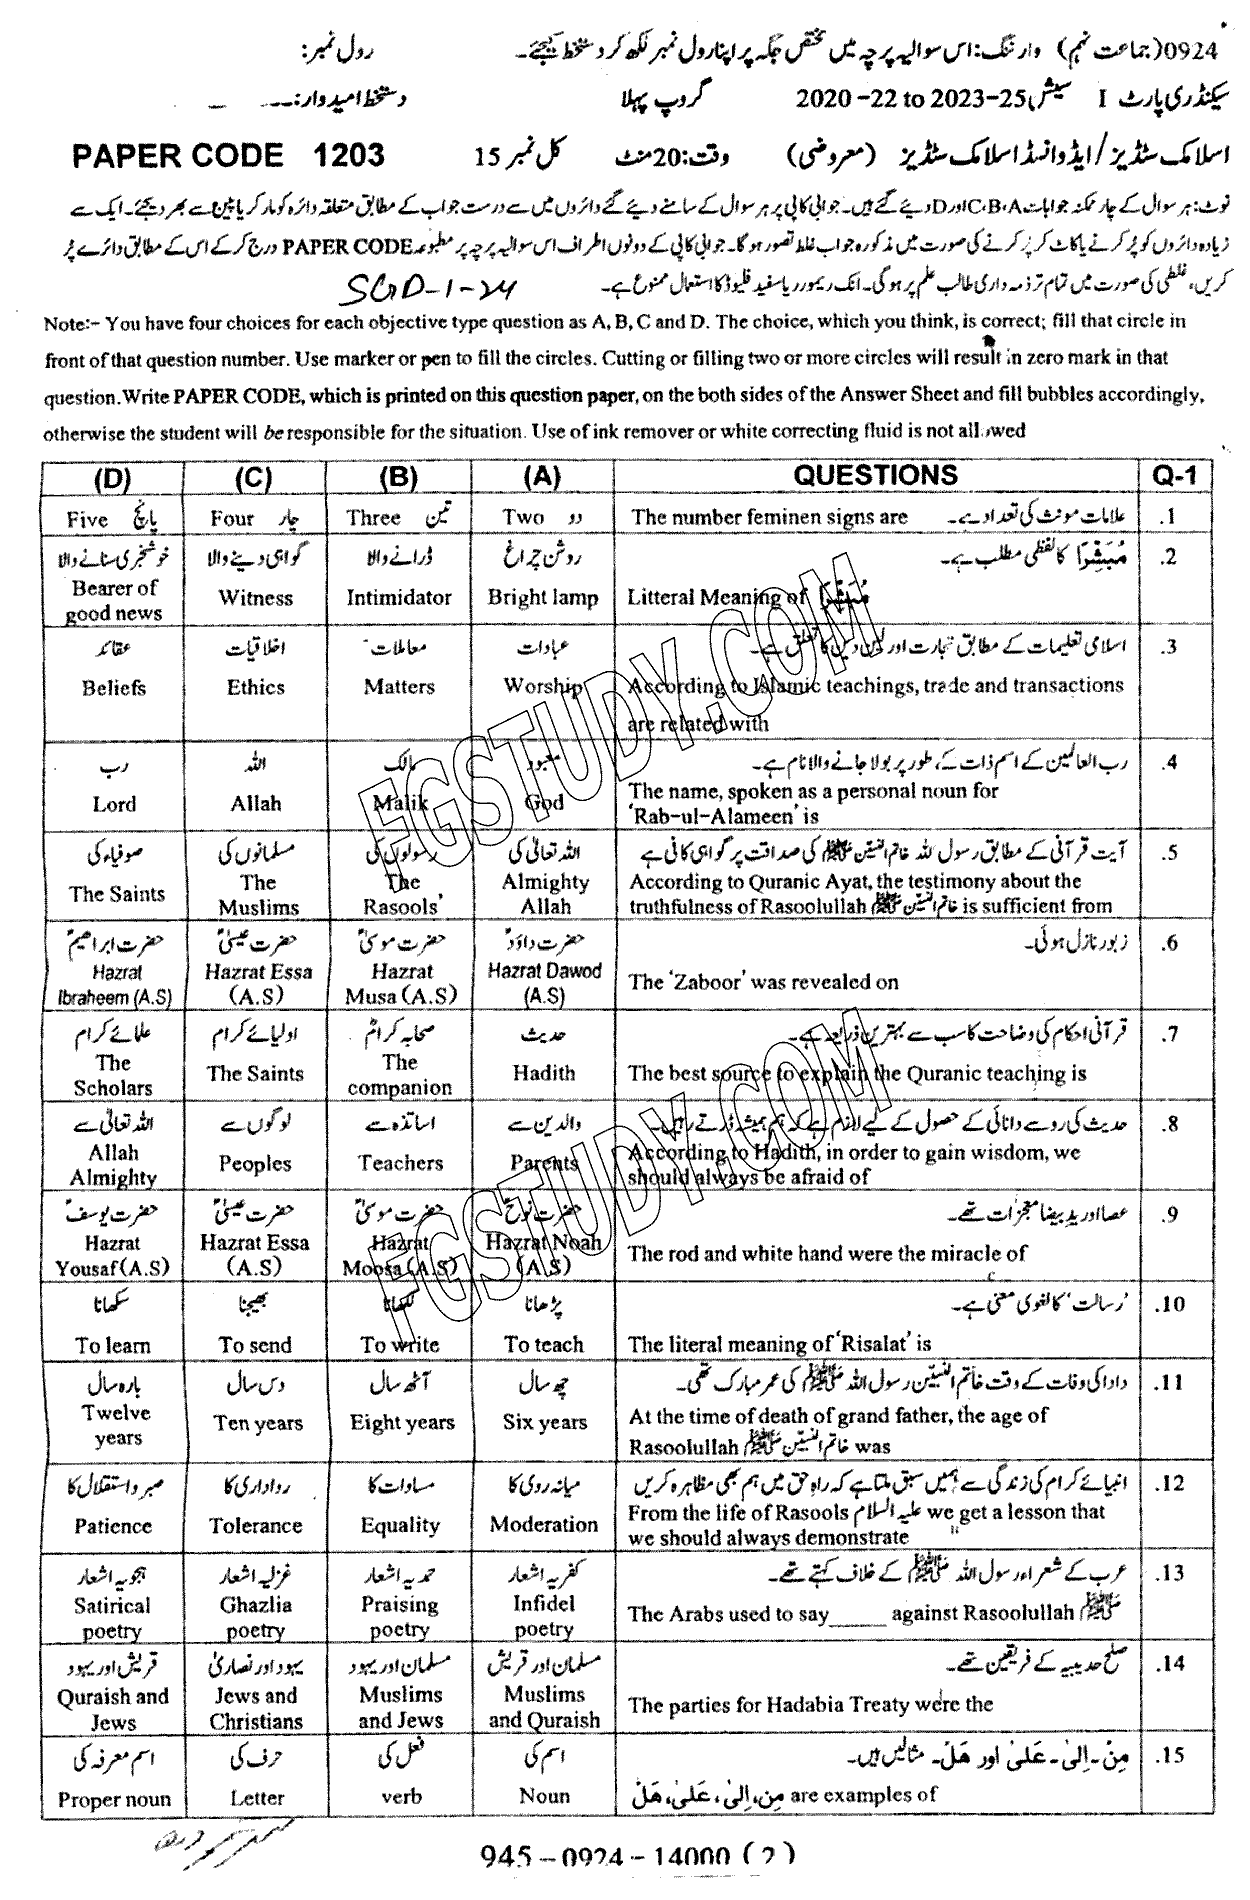 0924(جماعت نہم) وارننگ: اس سوالیہ پرچہ میں مختص جگہ پر اپنا رول نمبر لکھ کر دستخط کیجئے۔ رول نمبر:
سیکنڈری پارٹ I سیشن 2020-22 to 2023-25 گروپ پہلا دستخط امیدوار:---
اسلامک سٹڈیز/ایڈوانسڈ اسلامک سٹڈیز (معروضی) وقت:20 منٹ کل نمبر 15 PAPER CODE 1203
نوٹ: ہر سوال کے چار ممکنہ جوابات C،B،A اور D دیئے گئے ہیں۔ جوابی کاپی پر ہر سوال کے سامنے دیئے گئے دائروں میں سے درست جواب کے مطابق متعلقہ دائرہ کو مارکر یا پین سے بھر دیجئے۔ ایک سے
زیادہ دائروں کو پُر کرنے یا کاٹ کر پُر کرنے کی صورت میں مذکورہ جواب غلط تصور ہوگا۔ جوابی کاپی کے دونوں اطراف اس سوالیہ پرچہ پر مطبوعہ PAPER CODE درج کر کے اس کے مطابق دائرے پُر
کریں، غلطی کی صورت میں تمام تر ذمہ داری طالب علم پر ہوگی۔ انک ریمور ریا سفید فلیوڈ کا استعمال ممنوع ہے۔ SGD-1-24
Note:- You have four choices for each objective type question as A, B, C and D. The choice, which you think, is correct; fill that circle in
front of that question number. Use marker or pen to fill the circles. Cutting or filling two or more circles will result in zero mark in that
question. Write PAPER CODE, which is printed on this question paper, on the both sides of the Answer Sheet and fill bubbles accordingly,
otherwise the student will be responsible for the situation. Use of ink remover or white correcting fluid is not allowed
(D) (C) (B) (A) QUESTIONS Q-1
Five پانچ Four چار Three تین Two دو The number feminen signs are علامات مونث کی تعداد ہے۔ .1
خوشخبری سنانے والا گواہی دینے والا ڈرانے والا روشن چراغ مُبَشِّرًا کا لفظی مطلب ہے۔ .2
Bearer of good news Witness Intimidator Bright lamp Litteral Meaning of مُبَشِّرًا
عقائد اخلاقیات معاملات عبادات اسلامی تعلیمات کے مطابق تجارت اور لین دین کا تعلق ہے۔ .3
Beliefs Ethics Matters Worship According to Islamic teachings, trade and transactions
are related with
رب اللہ مالک معبود رب العالمین کے اسم ذات کے طور پر بولا جانے والا نام ہے۔ .4
Lord Allah Malik God The name, spoken as a personal noun for
'Rab-ul-Alameen' is
صوفیاء کی مسلمانوں کی رسولوں کی اللہ تعالیٰ کی آیت قرآنی کے مطابق رسول اللہ خاتم النبیین ﷺ کی صداقت پر گواہی کافی ہے .5
The Saints The Muslims The Rasools' Almighty Allah According to Quranic Ayat, the testimony about the
truthfulness of Rasoolullah خاتم النبیین ﷺ is sufficient from
حضرت ابراہیمؑ حضرت عیسیٰؑ حضرت موسیٰؑ حضرت داؤدؑ زبور نازل ہوئی۔ .6
Hazrat Ibraheem (A.S) Hazrat Essa (A.S) Hazrat Musa (A.S) Hazrat Dawod (A.S) The 'Zaboor' was revealed on
علمائے کرام اولیائے کرام صحابہ کرامؓ حدیث قرآنی احکام کی وضاحت کا سب سے بہترین ذریعہ ہے۔ .7
The Scholars The Saints The companion Hadith The best source to explain the Quranic teaching is
اللہ تعالیٰ سے لوگوں سے اساتذہ سے والدین سے حدیث کی رو سے دانائی کے حصول کے لیے لازم ہے کہ ہم ہمیشہ ڈرتے رہیں۔ .8
Allah Almighty Peoples Teachers Parents According to Hadith, in order to gain wisdom, we
should always be afraid of
حضرت یوسفؑ حضرت عیسیٰؑ حضرت موسیٰؑ حضرت نوحؑ عصا اور ید بیضا معجزات تھے۔ .9
Hazrat Yousaf (A.S) Hazrat Essa (A.S) Hazrat Moosa (A.S) Hazrat Noah (A.S) The rod and white hand were the miracle of
سکھانا بھیجنا لکھانا پڑھانا 'رسالت' کا لغوی معنی ہے۔ .10
To learn To send To write To teach The literal meaning of 'Risalat' is
بارہ سال دس سال آٹھ سال چھ سال دادا کی وفات کے وقت خاتم النبیین رسول اللہ ﷺ کی عمر مبارک تھی۔ .11
Twelve years Ten years Eight years Six years At the time of death of grand father, the age of
Rasoolullah خاتم النبیین ﷺ was
صبر و استقلال کا رواداری کا مساوات کا میانہ روی کا انبیائے کرام کی زندگی سے ہمیں سبق ملتا ہے کہ راہِ حق میں ہم بھی مظاہرہ کریں .12
Patience Tolerance Equality Moderation From the life of Rasools علیہ السلام we get a lesson that
we should always demonstrate
ہجویہ اشعار غزلیہ اشعار حمدیہ اشعار کفریہ اشعار عرب کے شعراء رسول اللہ ﷺ کے خلاف کہتے تھے۔ .13
Satirical poetry Ghazlia poetry Praising poetry Infidel poetry The Arabs used to say_____ against Rasoolullah ﷺ
قریش اور یہود یہود اور نصاریٰ مسلمان اور یہود مسلمان اور قریش صلح حدیبیہ کے فریقین تھے۔ .14
Quraish and Jews Jews and Christians Muslims and Jews Muslims and Quraish The parties for Hadabia Treaty were the
اسم معرفہ کی حرف کی فعل کی اسم کی مِنْ۔ اِلیٰ۔ عَلیٰ اور هَلْ۔ مثالیں ہیں۔ .15
Proper noun Letter verb Noun مِن، اِلیٰ، عَلیٰ، هَلْ are examples of
945-0924-14000 (2)
FGSTUDY.COM
FGSTUDY.COM